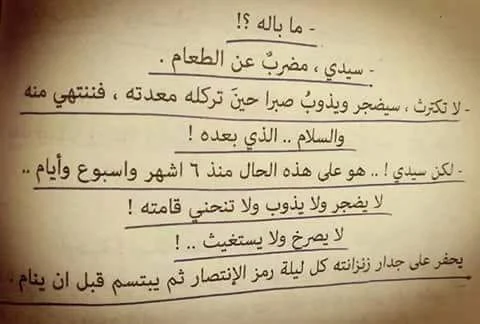 - ما باله ؟!
- سيدي ، مضربٌ عن الطعام .
- لا تكترث ، سيضجر ويذوبُ صبرا حينَ تركله معدته ، فننتهي منه
والسلام .. الذي بعده !
- لكن سيدي ! .. هو على هذه الحال منذ ٦ اشهر واسبوع وأيام ..
لا يضجر ولا يذوب ولا تنحني قامته !
لا يصرخ ولا يستغيث .. !
يحفر على جدار زنزانته كل ليلة رمز الإنتصار ثم يبتسم قبل ان ينام .